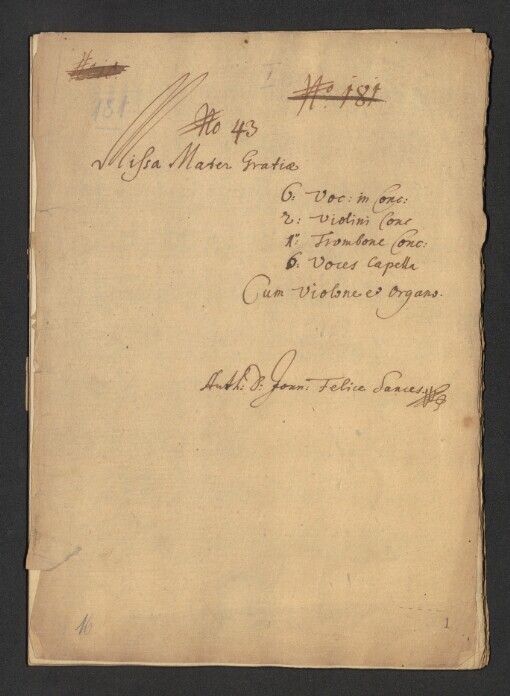 181
I
No. 181
No 43
Missa Mater Gratiæ
6: Voc: in Conc:
2: Violini Conc
1º Trombone Conc:
6: Voces Capella
Cum Violone et Organo.
Auth: D: Joan: Felice Sances.
16
1